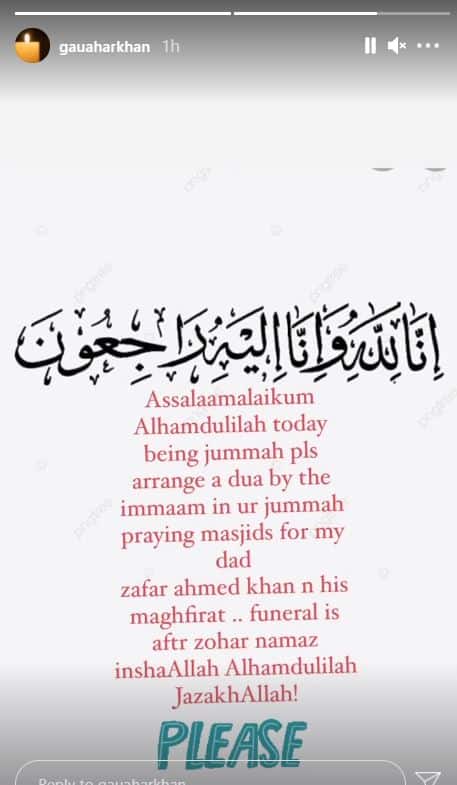 gauaharkhan 1h
إِنَّا لِلَّٰهِ وَإِنَّا إِلَيْهِ رَاجِعُونَ
Assalaamalaikum
Alhamdulilah today
being jummah pls
arrange a dua by the
immaam in ur jummah
praying masjids for my
dad
zafar ahmed khan n his
maghfirat .. funeral is
aftr zohar namaz
inshaAllah Alhamdulilah
JazakhAllah!
PLEASE
Reply to gauaharkhan